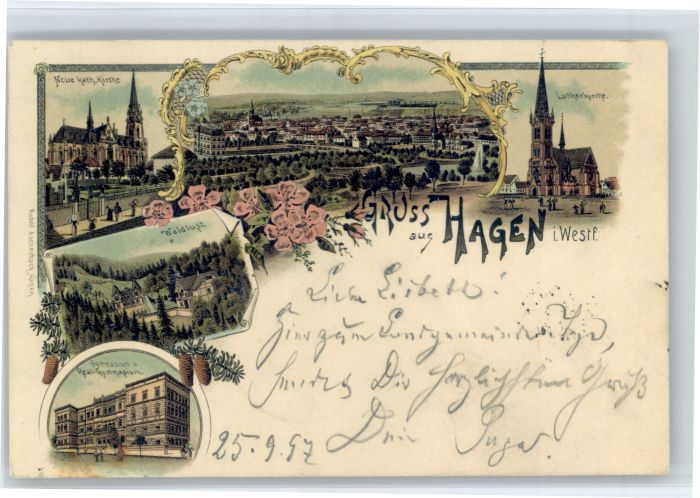 Neue kath. Kirche
Lutherkirche.
Gruss
aus
Hagen
i. Westf.
Waldlust.
Gymnasium u.
Real-Gymnasium.
Liebe Lisbeth!
Hier zum
sendet Dir herzlichsten Gruß
Dein
25.9.97